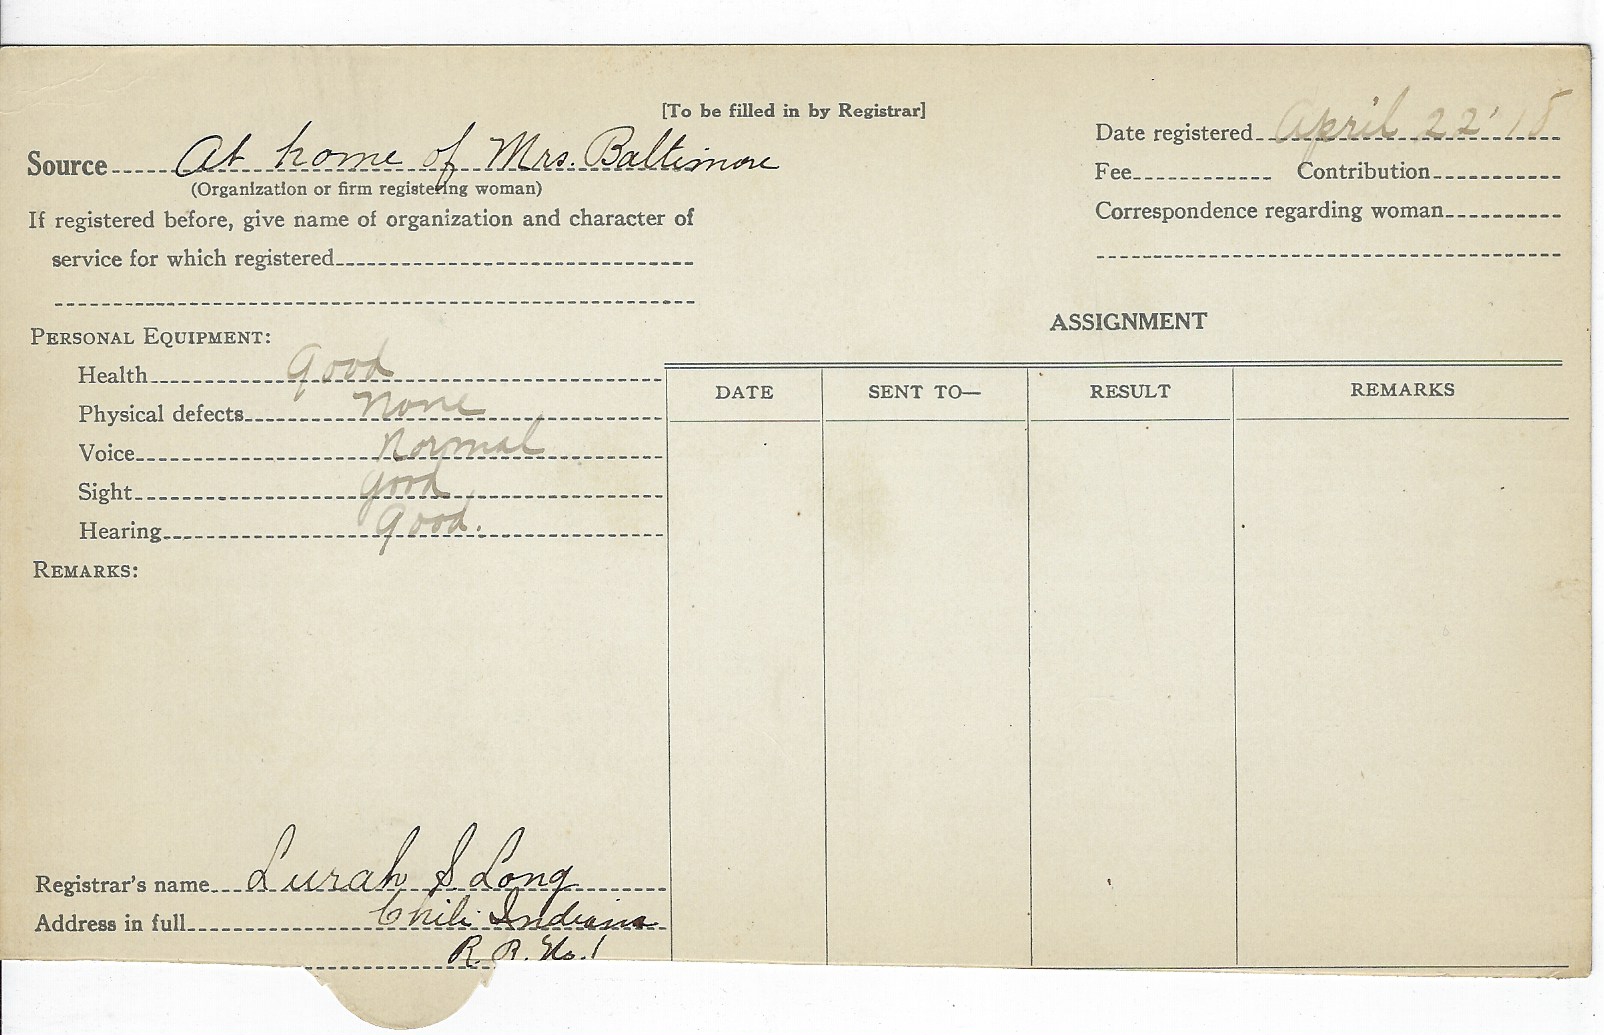 [To be filled in by Registrar]
Source At home of Mrs. Baltimore
(Organization or firm registering woman)
If registered before, give name of organization and character of
service for which registered
Date registered April 22' 18
Fee Contribution
Correspondence regarding woman
PERSONAL EQUIPMENT:
Health good
Physical defects none
Voice normal
Sight good
Hearing good.
REMARKS:
ASSIGNMENT
DATE SENT TO— RESULT REMARKS
Registrar's name Lurah S Long
Address in full Chili Indiana
R. R. No. 1